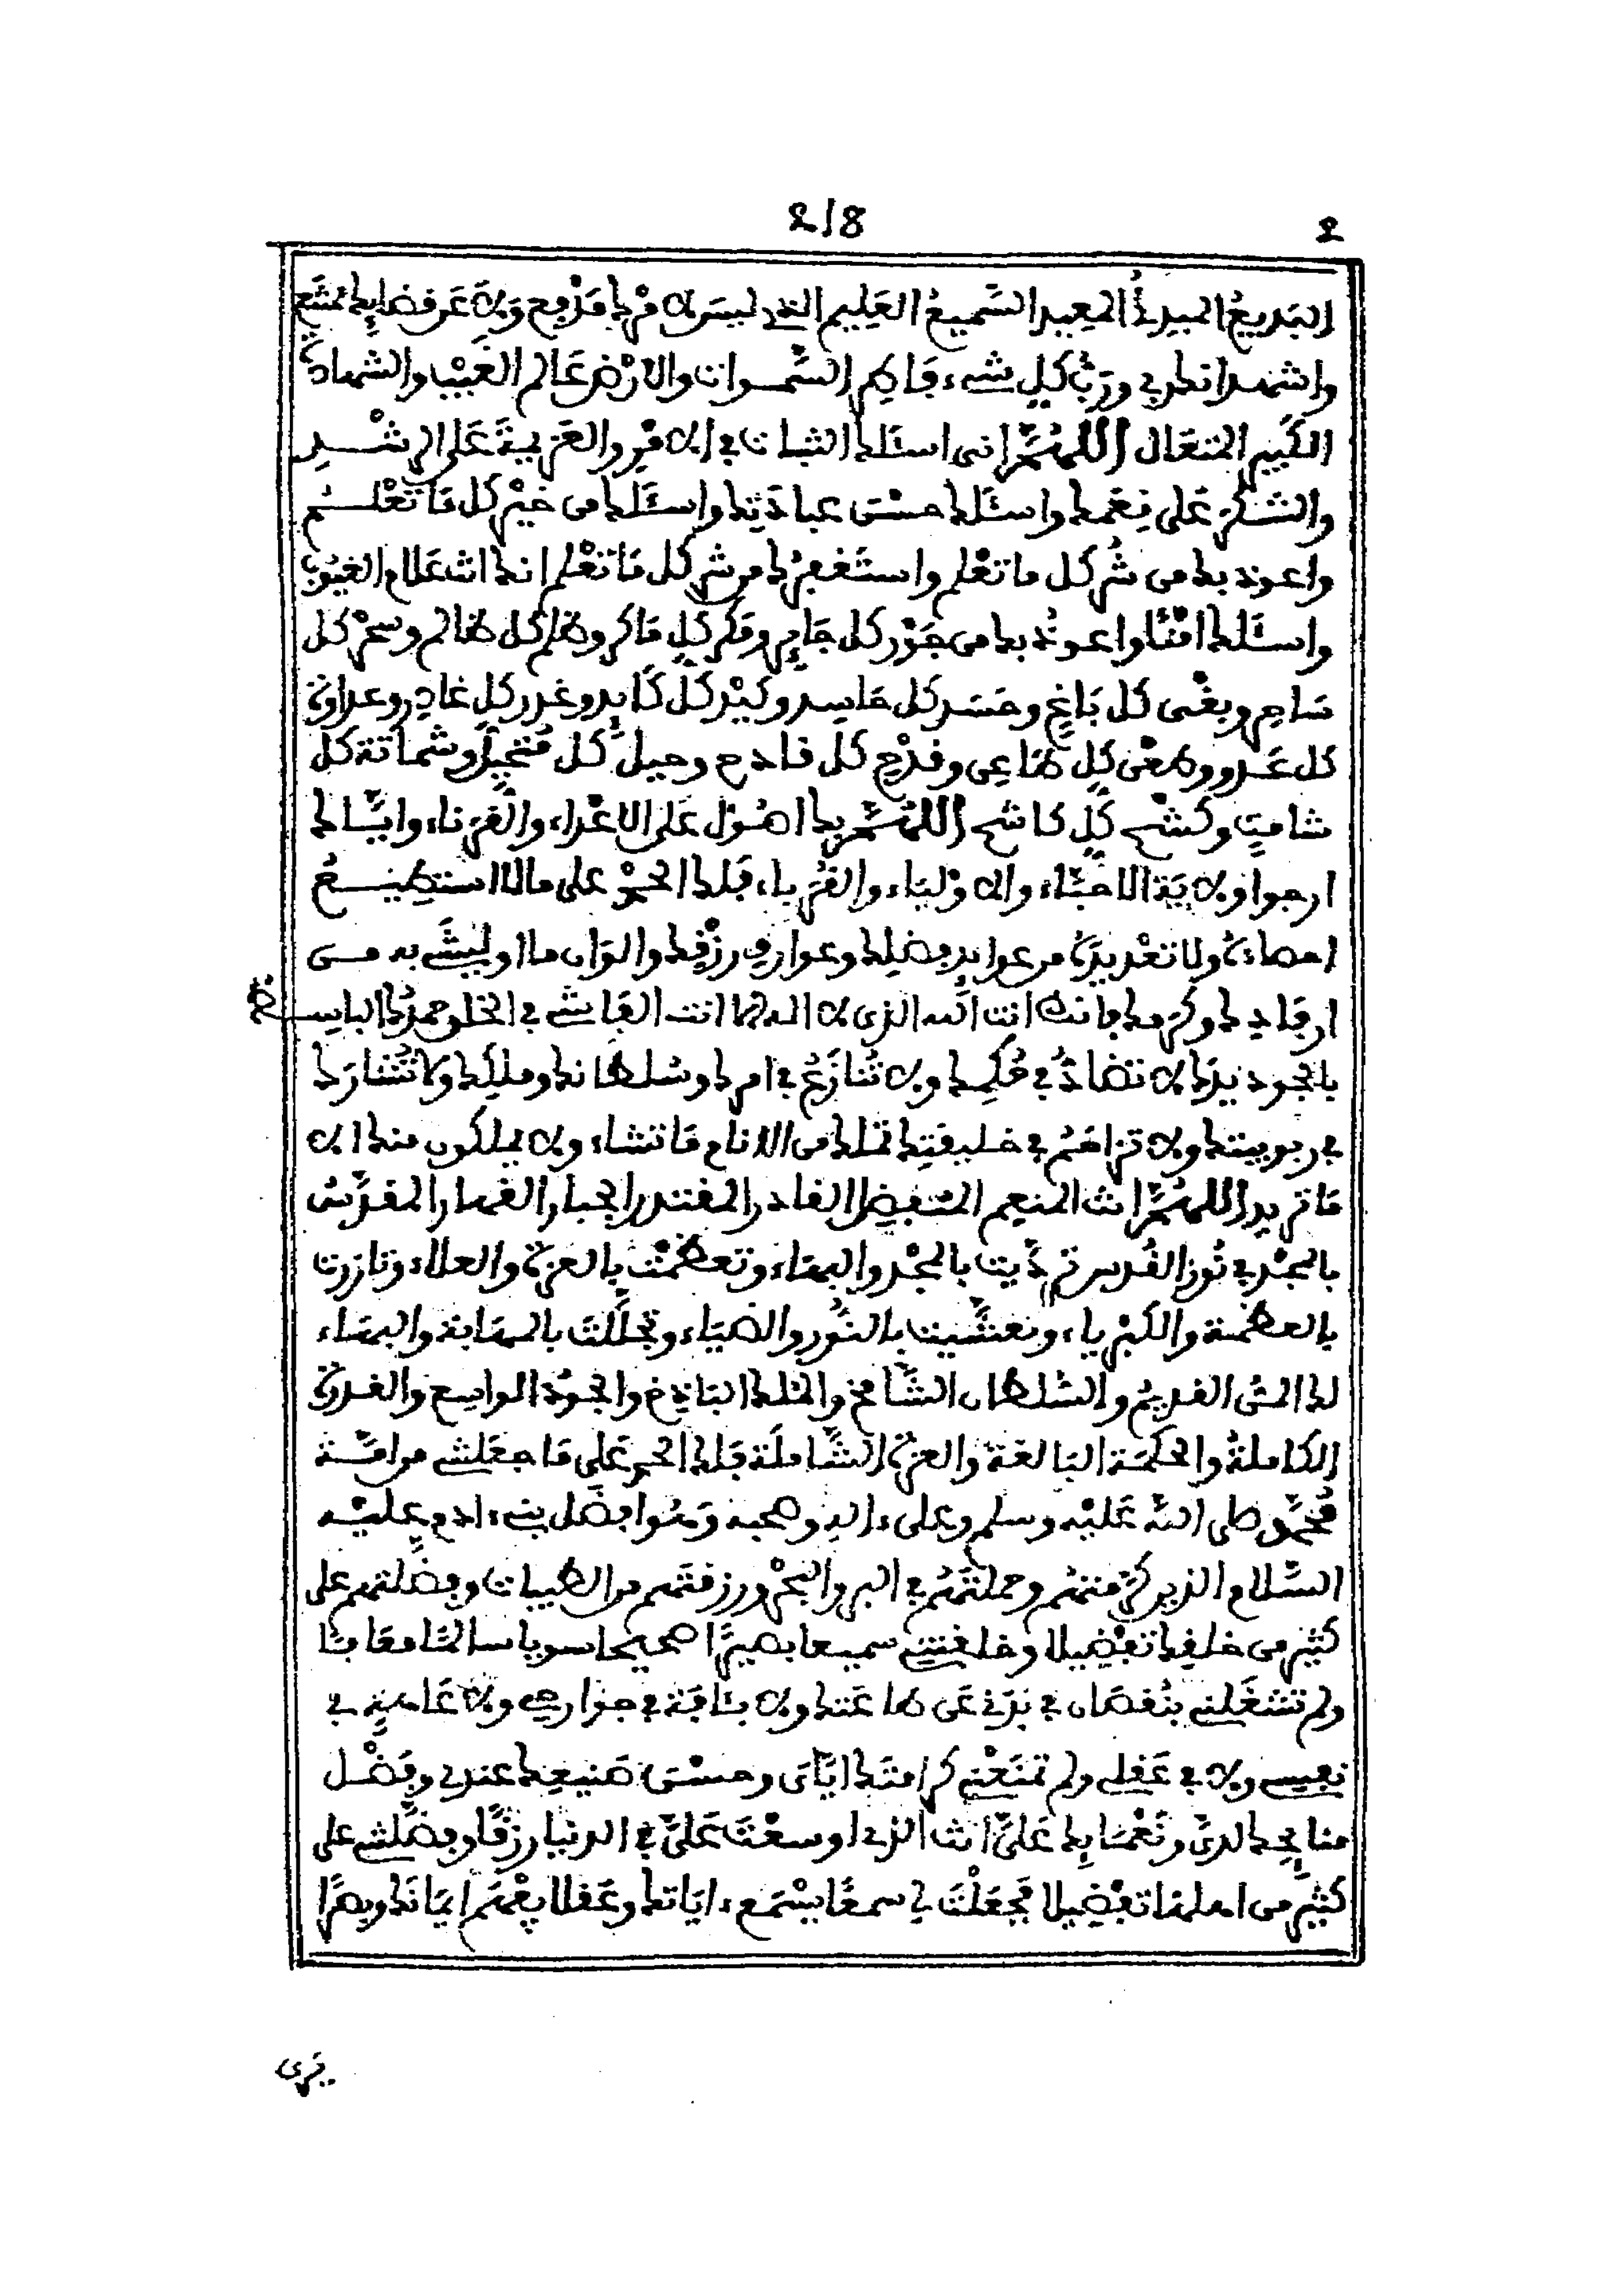 2/8
2
البديع المبدئ المعيد السميع العليم الذي ليس لامرك مدفوع ولا عن قضايك ممتنع
واشهد انك ربي ورب كل شيء فاطر السموات والارض عالم الغيب والشهادة
الكبير المتعال اللهم اني اسئلك الثبات في الامر والعزيمة على الرشد
والشكر على نعمك واسئلك حسن عبادتك واسئلك من خير كل ما تعلم
واعوذ بك من شر كل ما تعلم واستغفرك من شر كل ما تعلم انك انت علام الغيوب
واسئلك امنا واعوذ بك من جور كل جاير ومكر كل ماكر وظلم كل ظالم وسحر كل
ساحر وبغى كل باغ وحسد كل حاسد وكيد كل كايد وغدر كل غادر وعداوة
كل عدو وطعن كل طاعن وقدح كل قادح وحيل كل متحيل وشماتة كل
شامت وكشح كل كاشح اللهم بك اصول على الاعداء والقرناء واياك
ارجوا ولاية الاحباء والاولياء والقرباء فلك الحمد على ما لا استطيع
احصاءه ولا تعديده من عوايد فضلك وعوارف رزقك والوان ما اوليتني به من
ارفادك وكرمك فانك انت الله الذي لا اله الا انت الفاشي في الخلق حمدك الباسط
بالجود يدك لا تضاد في حكمك ولا تنازع في امرك وسلطانك وملكك ولا تشارك
في ربوبيتك ولا تزاحم في خليقتك تملك من الانام ما تشاء ولا يملكون منك الا
ما تريد اللهم انت المنعم المتفضل القادر المقتدر الجبار القهار المقدس
بالمجد في نور القدس ترديت بالمجد والبهاء وتعظمت بالعزة والعلاء وتازرت
بالعظمة والكبرياء وتغشيت بالنور والضياء وتجللت بالمهابة والبهاء
لك المن القديم والسلطان الشامخ والملك الباذخ والجود الواسع والقدرة
الكاملة والحكمة البالغة والعزة الشاملة فلك الحمد على ما جعلتني من امة
محمد صلى الله عليه وسلم وعلى ءاله وصحبه وهوا فضل بني ءادم عليه
السلام الذين كرمتهم وحملتهم في البر والبحر ورزقتهم من الطيبات وفضلتهم على
كثير من خلقك تفضيلا وخلقتني سميعا بصيرا صحيحا سويا سالما معافا
ولم تشغلني بنقصان في بدني عن طاعتك ولا بئافة في جوارحي ولا عاهة في
نفسي ولا في عقلي ولم تمنعني كرامتك اياي وحسن صنيعك عندي وفضل
منايحك لدي ونعمايك علي انت الذي اوسعت علي في الدنيا رزقا وفضلتني على
كثير من اهلها تفضيلا فجعلت لي سمعا يسمع ءاياتك وعقلا يفهم ايمانك وبصرا
يرى